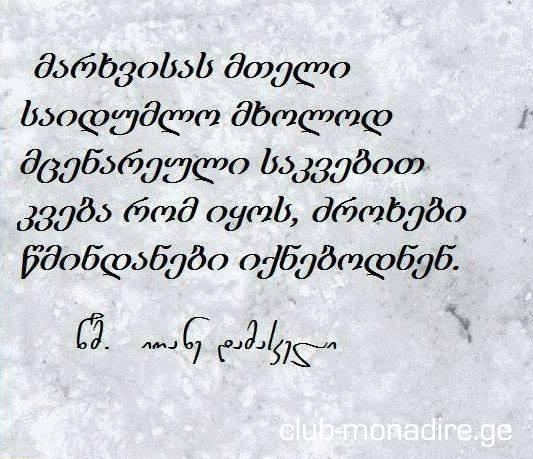 მარხვისას მთელი
საიდუმლო მხოლოდ
მცენარეული საკვებით
კვება რომ იყოს, ძროხები
წმინდანები იქნებოდნენ.
წმ. იოანე დამასკელი
club-monadire.ge